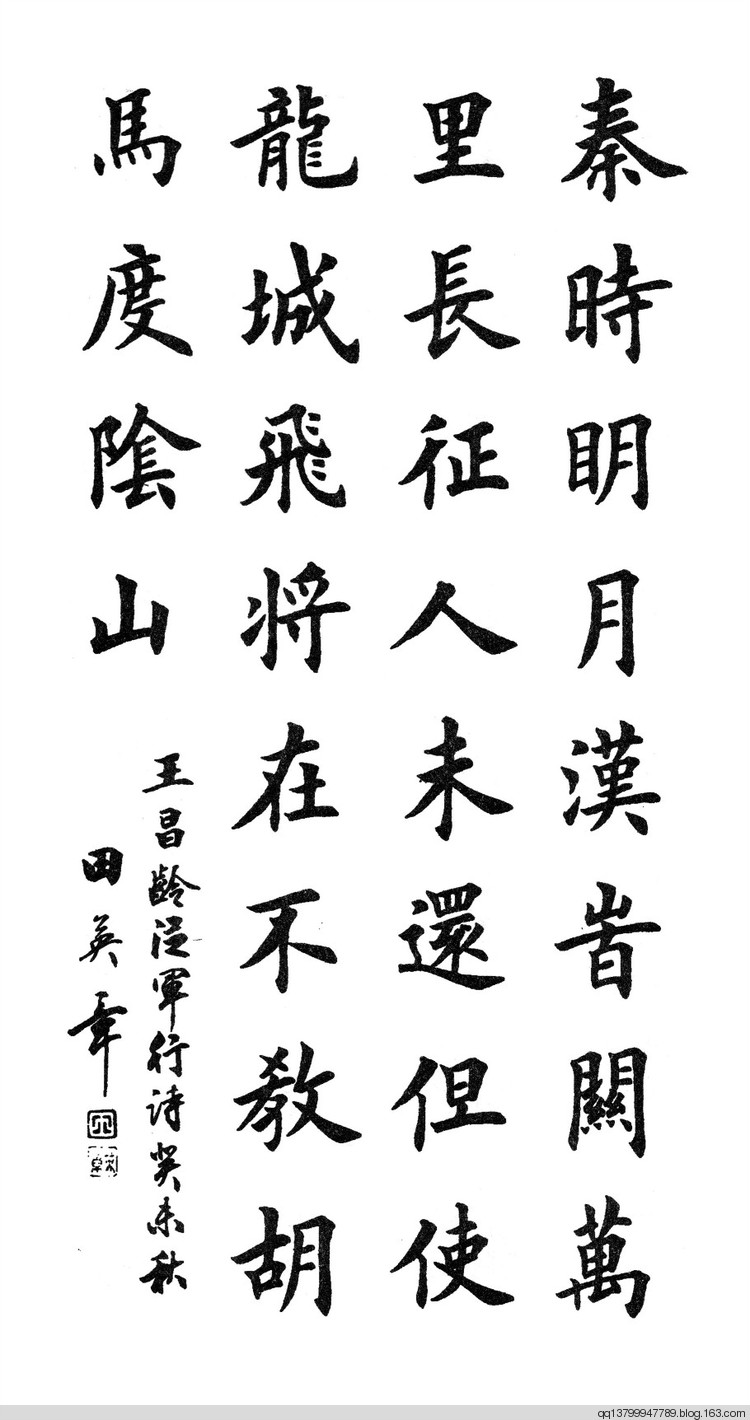 秦時眀月漢旹關萬
里長征人未還但使
龍城飛将在不教胡
馬度陰山
王昌齡從軍行诗癸未秋
田英章
qq13799947789.blog.163.com